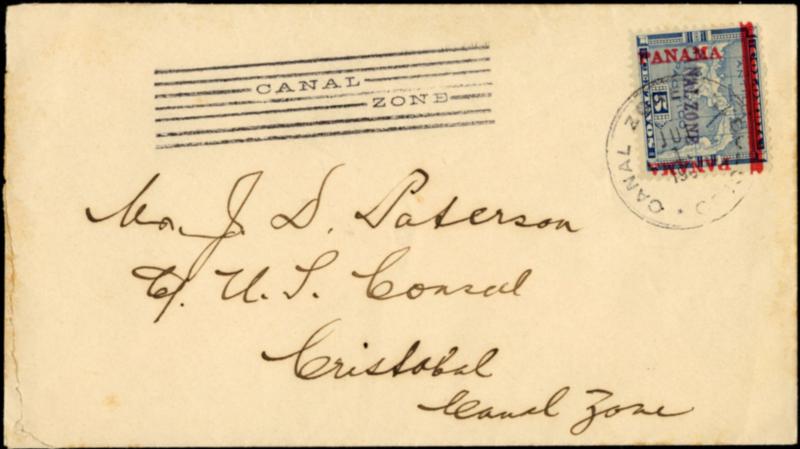 CANAL
ZONE
PANAMA
CANAL ZONE
PANAMA
5
CANAL
Mr. J. D. Paterson
c/. U. S. Consul
Cristobal
Canal Zone